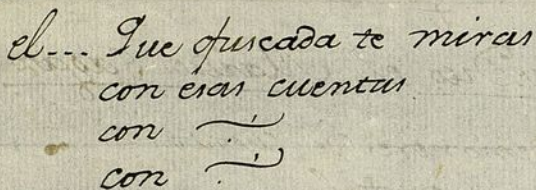 el--- Que ofuscada te miras
con esas cuentas
con
con